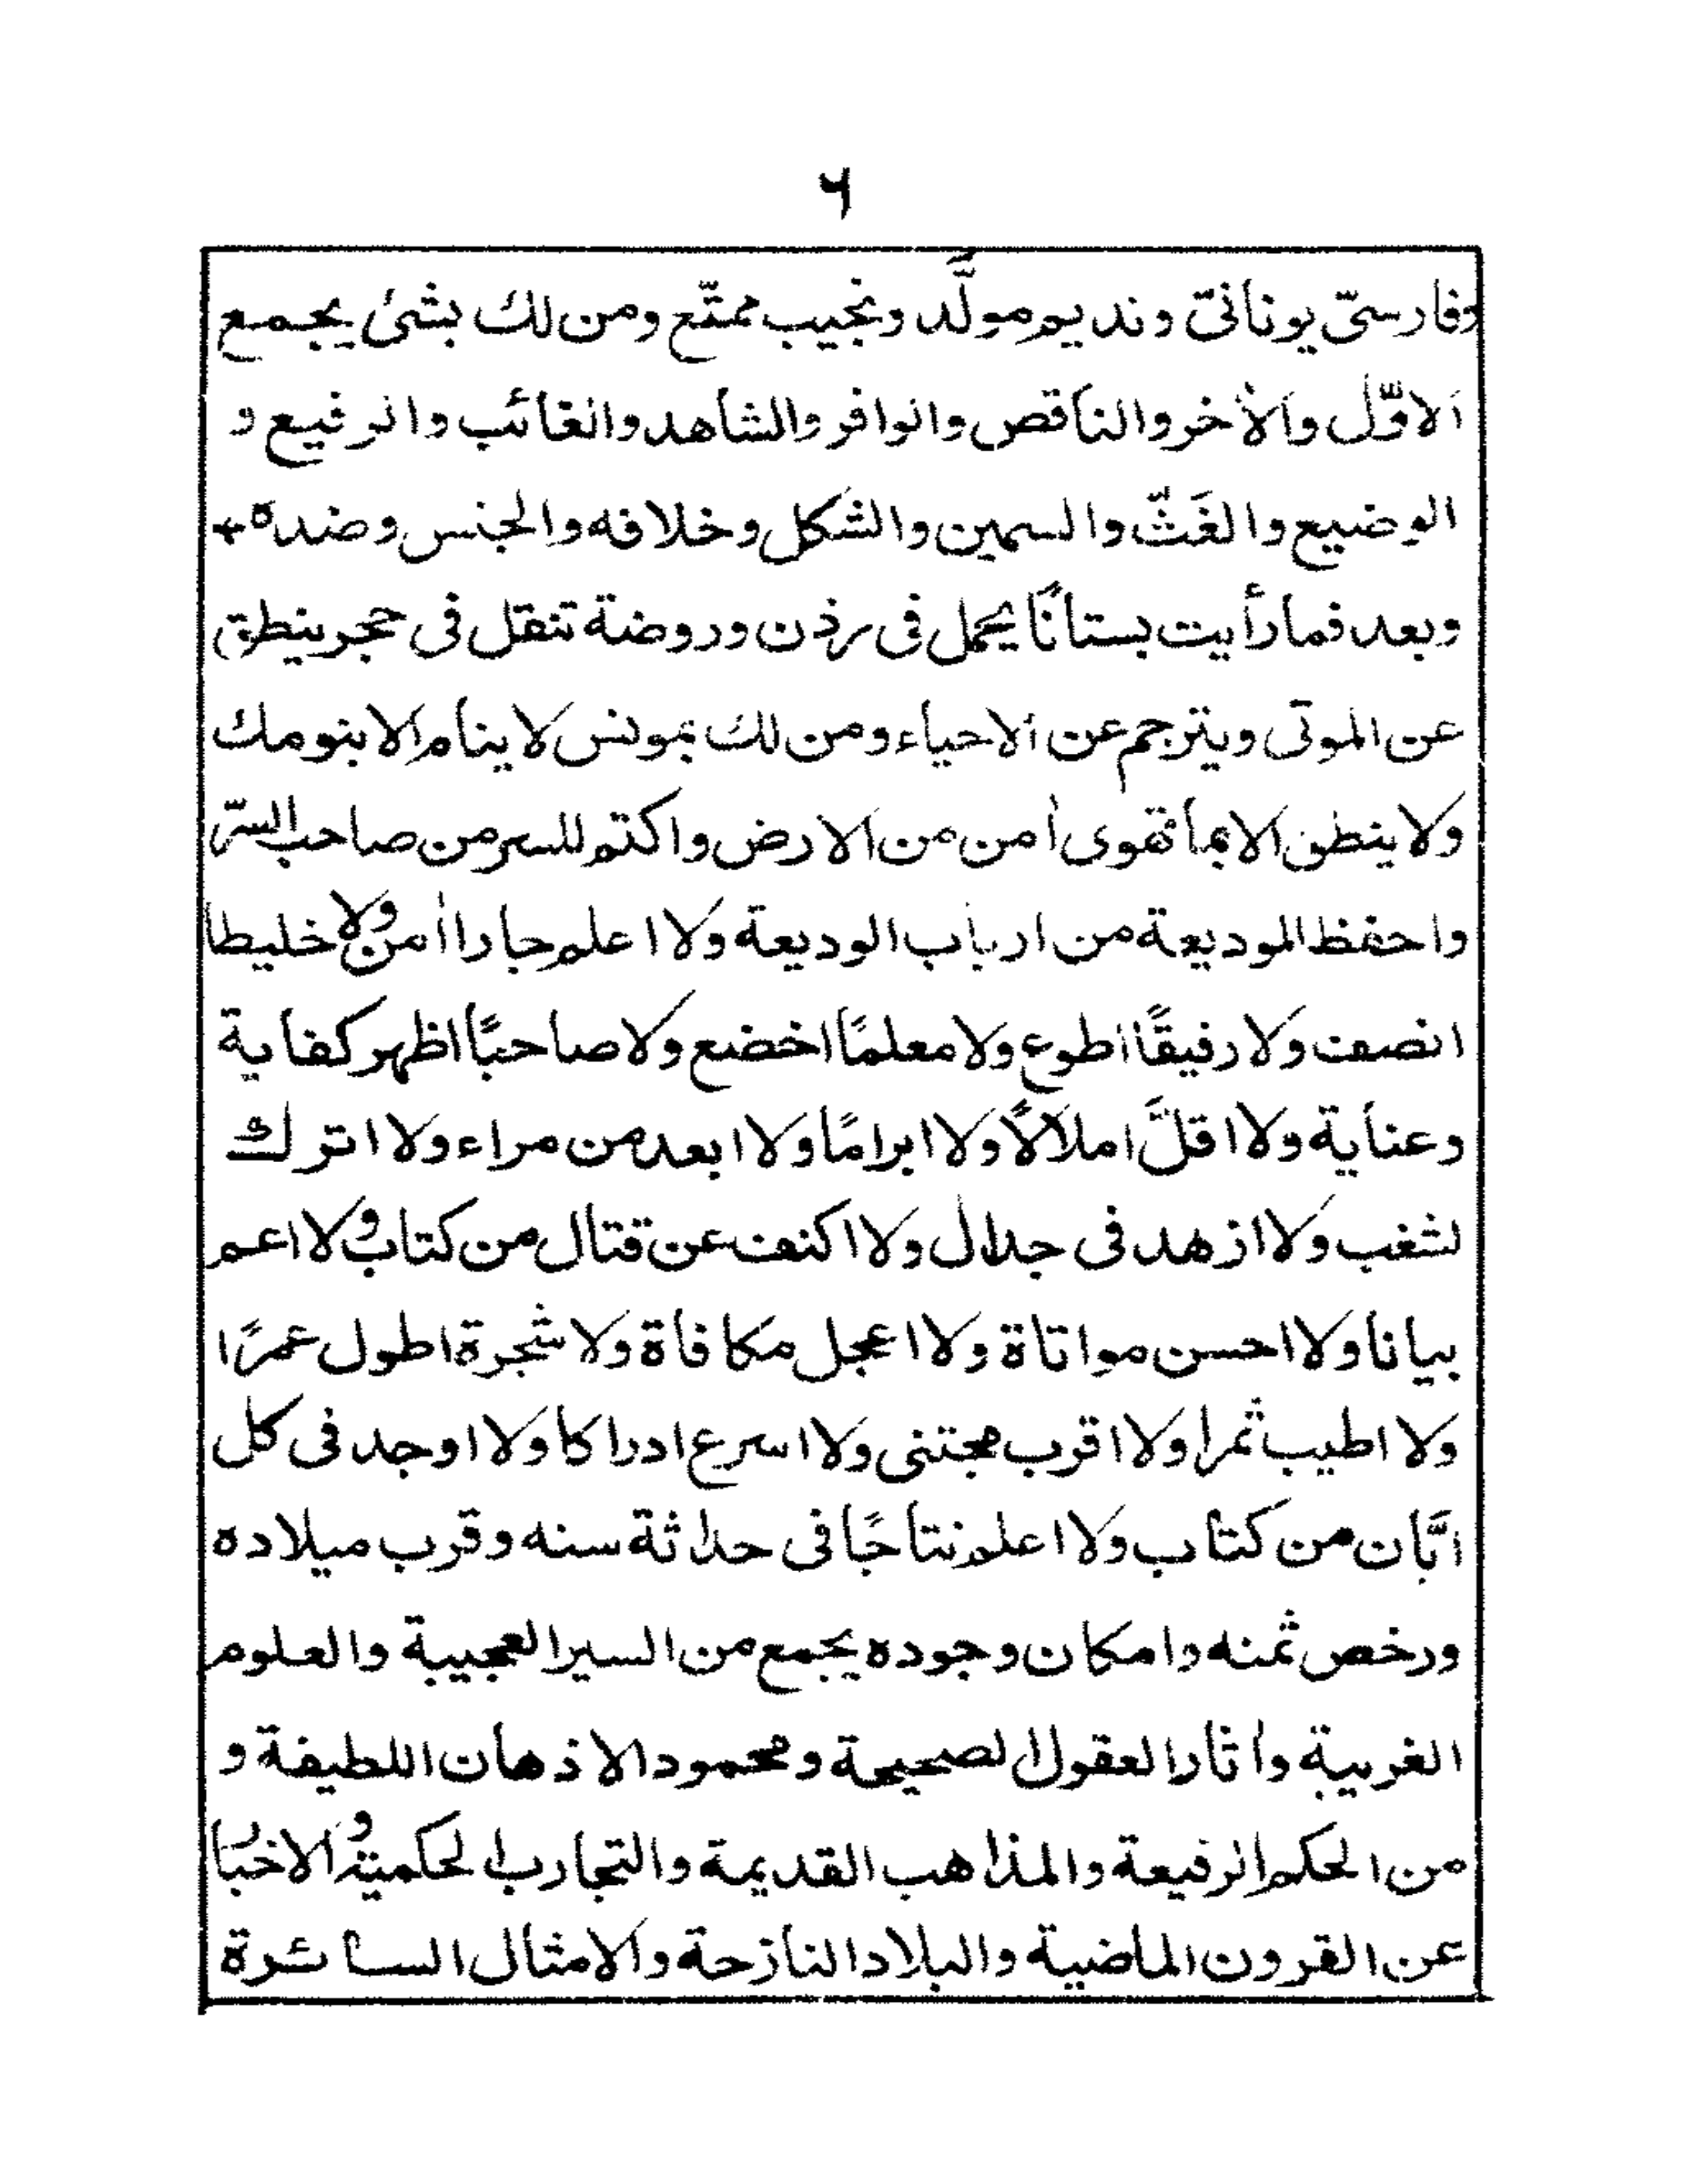 ٦
وفارسىّ يونانىّ ونديم مولَّد ونجيب ممتّع ومن لك بشئ يجمع
الاوّل والآخر والناقص والوافر والشاهد والغائب والرفيع و
الوضيع والغَثّ والسمين والشكل وخلافه والجنس وضده +
وبعد فما رأيت بستانًا يحمل فى رذن وروضة تنقل فى حجر ينطق
عن الموتى ويترجم عن الاحياء ومن لك بمونس لا ينام الا بنومك
ولا ينطق الا بما تهوى اٰمن من الارض واكتم للسر من صاحب السرّ
واحفظ الموديعة من ارباب الوديعة ولا اعلم جارا اٰمن ولا خليطا
انصف ولا رفيقًا اطوع ولا معلمًا اخضع ولا صاحبًا اظهر كفاية
وعناية ولا اقلَّ املالًا ولا ابرامًا ولا ابعد من مراء ولا اترك
لشغب ولا ازهد فى جدال ولا اكف عن قتال من كتاب ولا اعم
بيانا ولا احسن مواتاة ولا اعجل مكافاة ولا شجرة اطول عمرًا
ولا اطيب ثمرا ولا اقرب مجتنى ولا اسرع ادراكا ولا اوجد فى كل
ابّان من كتاب ولا اعلم نتاجًا فى حداثة سنه وقرب ميلاده
ورخص ثمنه وامكان وجوده يجمع من السير العجيبة والعلوم
الغريبة واٰثار العقول الصحيحة ومحمود الاذهان اللطيفة و
من الحكم الرفيعة والمذاهب القديمة والتجارب الحكمية والاخبار
عن القرون الماضية والبلاد النازحة والامثال السائرة